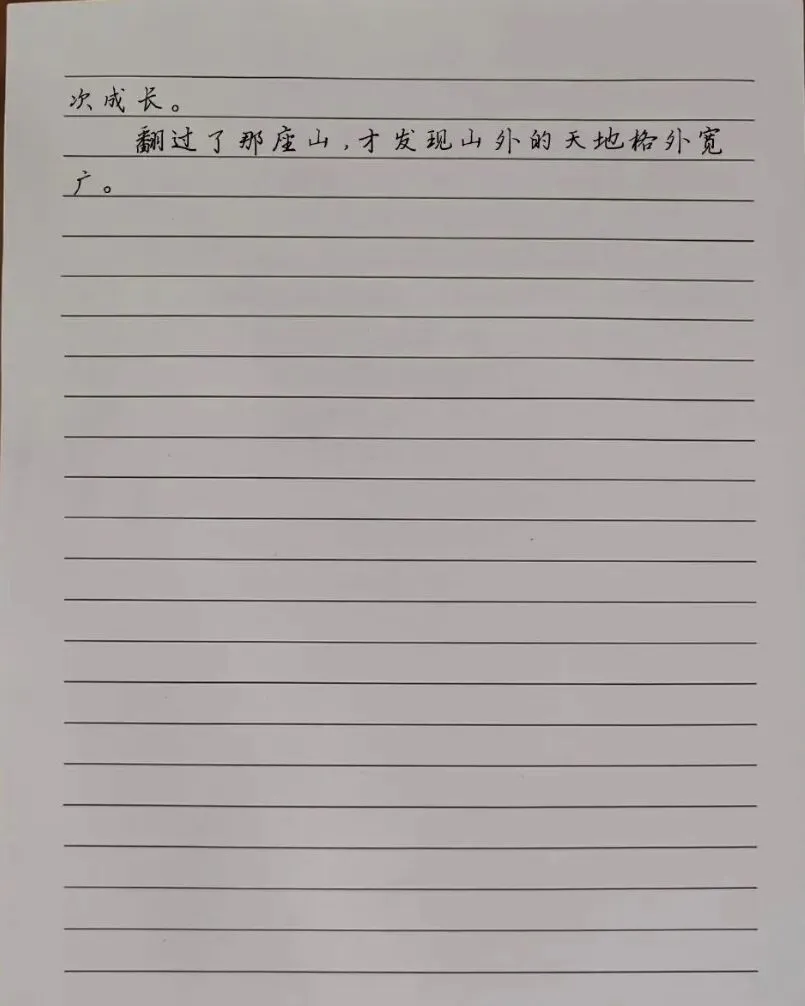 次成长。
翻过了那座山,才发现山外的天地格外宽
广。